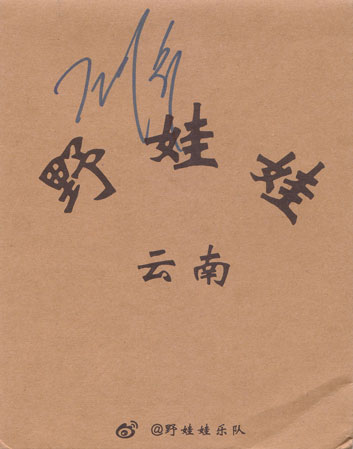 野娃娃
云南
@野娃娃乐队